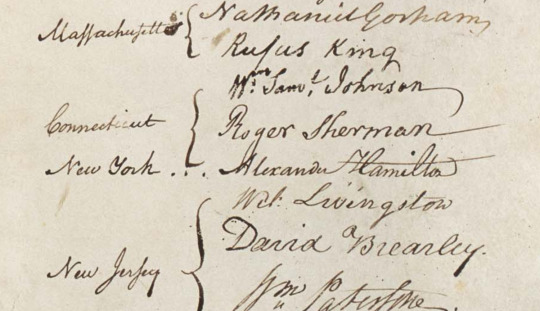 Massachusetts { Nathaniel Gorham
Rufus King
Wm: Saml. Johnson
Connecticut { Roger Sherman
New York . . . Alexander Hamilton
Wil: Livingston
New Jersey { David Brearley.
Wm Paterson.